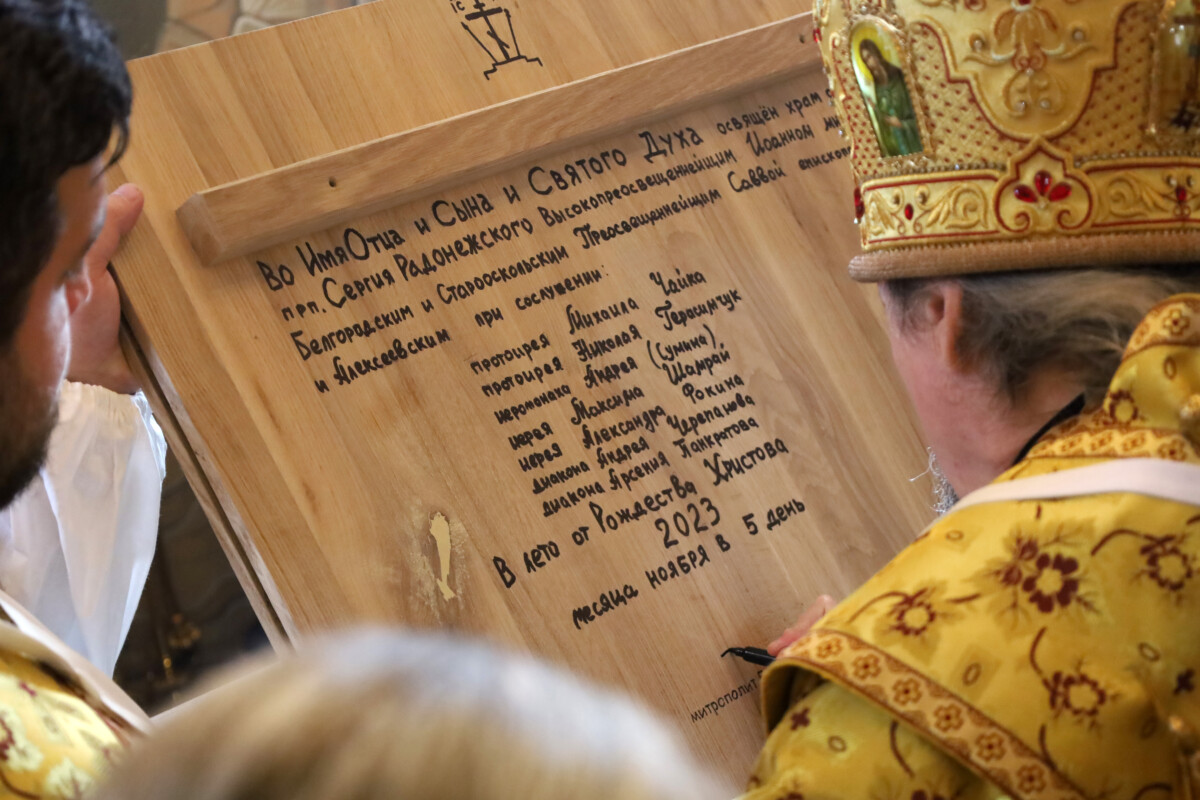 IC
Во Имя Отца и Сына и Святого Духа освящён храм
прп. Сергия Радонежского Высокопреосвященнейшим Иоанном
Белгородским и Старооскольским Преосвященнейшим Саввой
и Алексеевским при сослужении:
протоирея Михаила Чайка
протоирея Николая Герасимчук
иеромонаха Андрея
иерея Максима Шамрай
иерея Александра Фокина
диакона Андрея Черепанова
диакона Арсения Панкратова
В лето от Рождества Христова
2023
месяца ноября в 5 день
митрополит